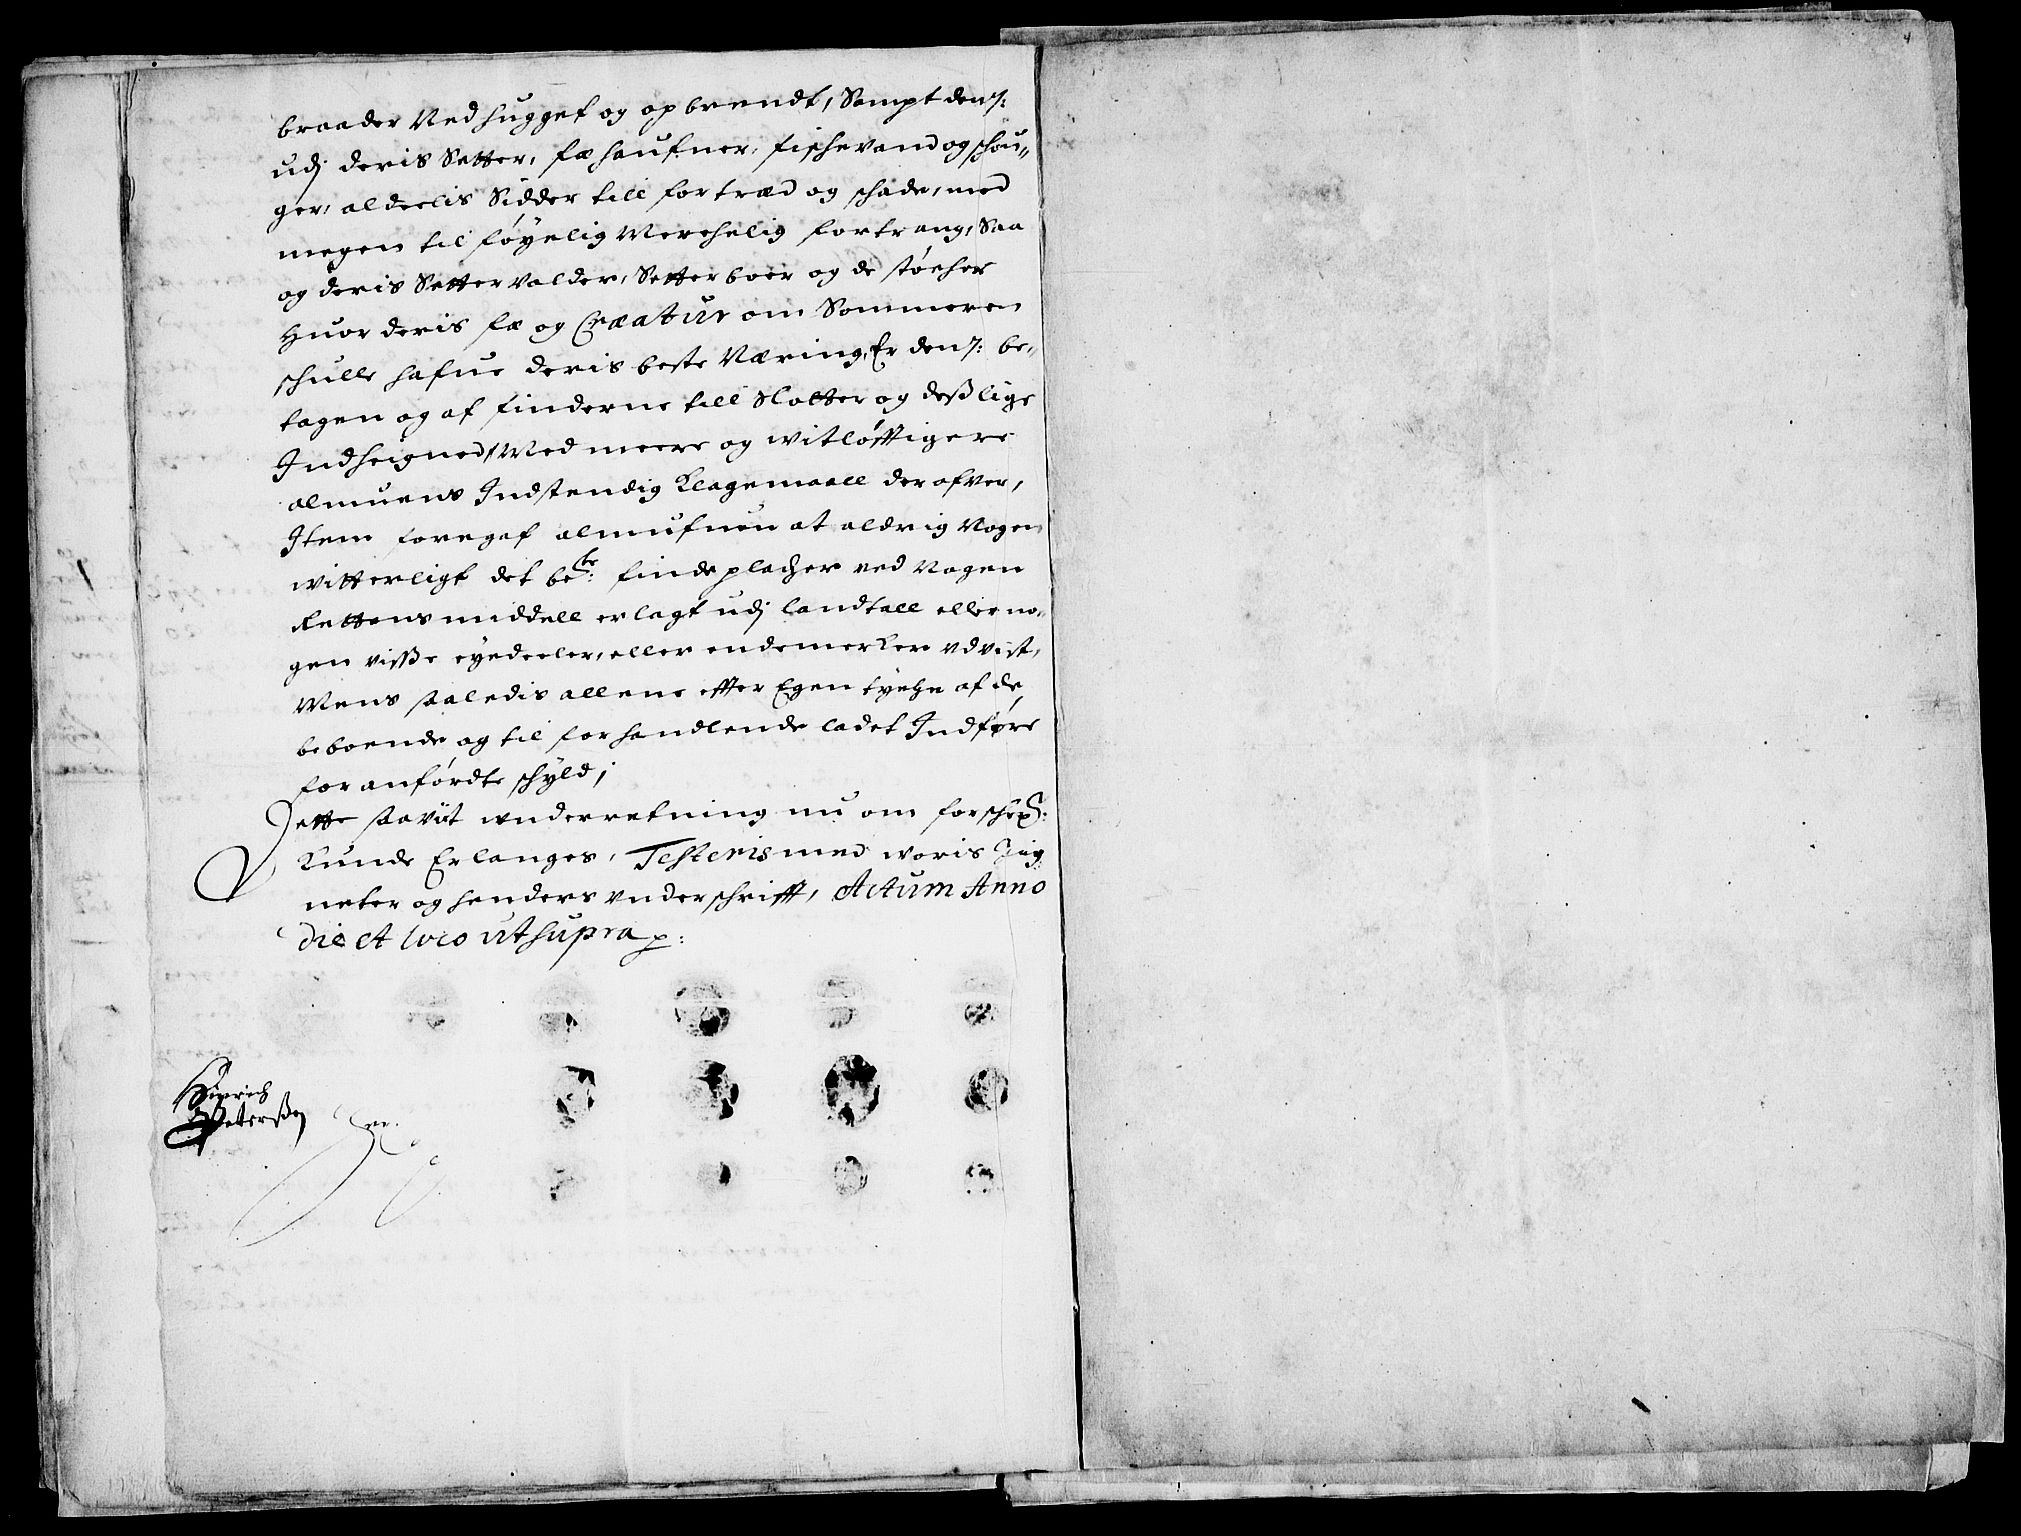 braader Ved huggef og op brendt, Sampt den:
udj deris Setter, fæ haufner, fischevand og schou„
ger, aldeelis Sidder till fortræd og schade, med
megen til føyelig Merchelig fortrang, Saa
og deris Setter Valder, Setterboer og de støcher
Huor deris fæ og Creatur om Sommeren
schulle hafue deris beste Næring, Er den: be„
tagen og af finderne till Slotter og deßlige
Indheigned, Med meere og witløfftigere
almuens Indstendig Klagemaall derofver,
Item foregaf almufuen at aldrig Nogen
witterligt det be:te finde placher ved Nogen
Rettens middell er lagt udj landtall eller no„
gen visße eyedeeler, eller endemercker vdvist,
Mens saaledis allene effter Egen tyche af de
beboende og til forhandlende ladet Indføre
for anførdte schyld;
Dette saavit underretning nu om forsch:
kunde Erlanges, Testeris med woris Zig
neter og henders vnderschrifft, Actum Anno
die et loco ut supra p:
Hinrich
Peterßen